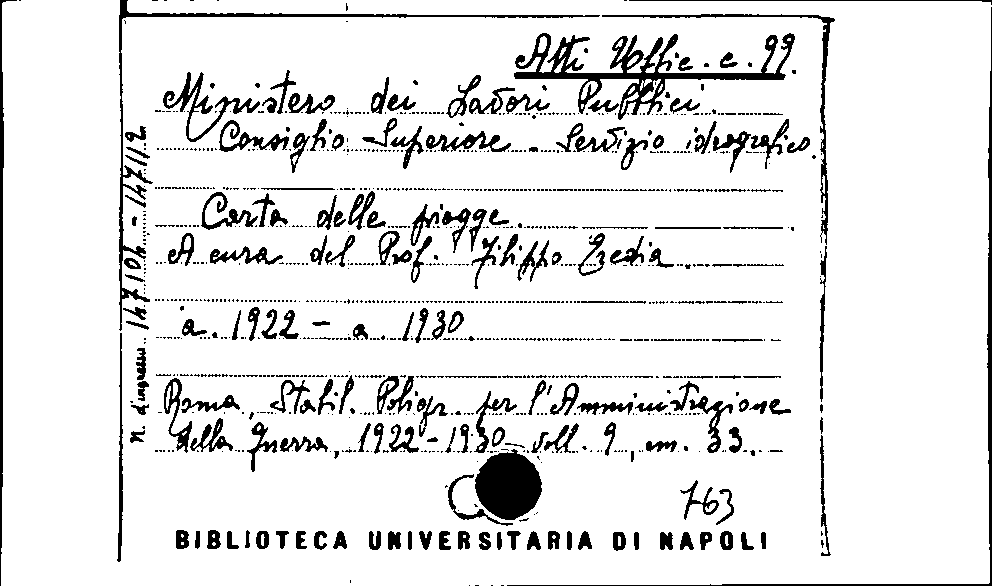 Atti Uffic. c. 99.
Ministero dei Lavori Pubblici.
Consiglio Superiore - Servizio idrografico.
Carta delle piogge.
A cura del Prof. Filippo Eredia.
a. 1922 - a. 1930.
Roma, Stabil. Poligr. per l'Amministrazione
della Guerra, 1922-1930 voll. 9, cm. 33.
763
N. d'ingresso 147104 - 147112
BIBLIOTECA UNIVERSITARIA DI NAPOLI